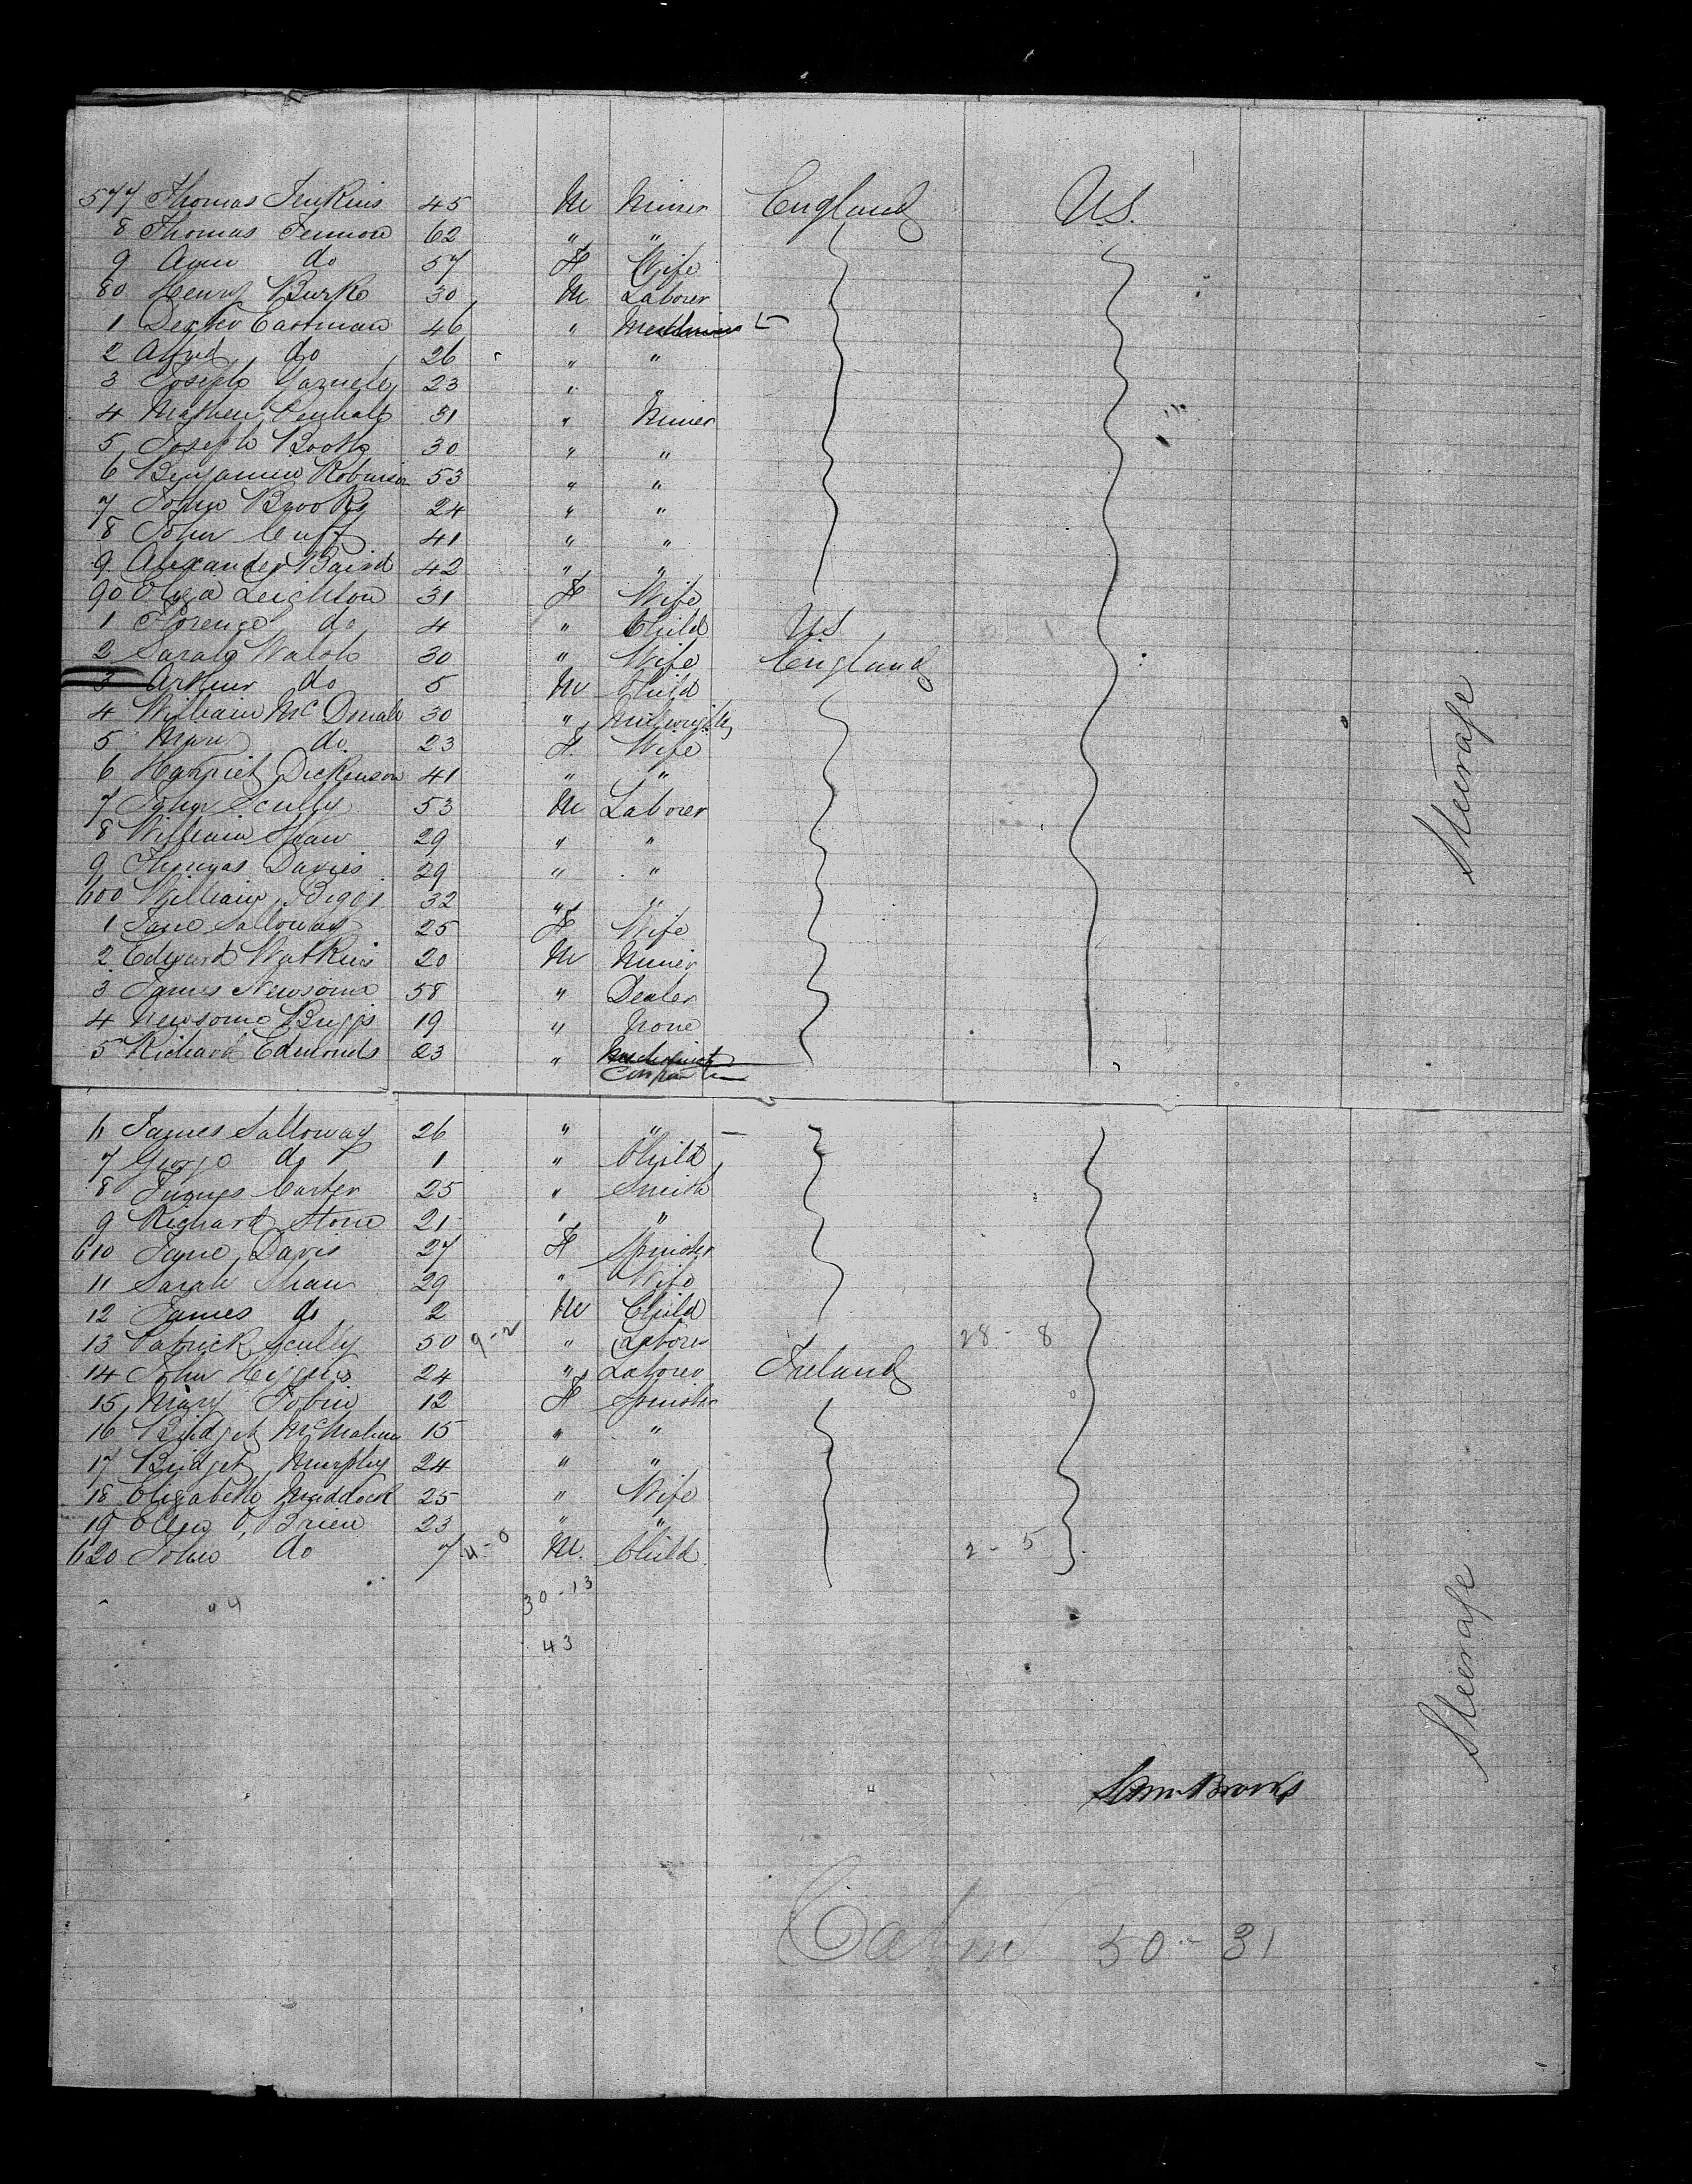 577 Thomas Jenkins 45 M Miner England U.S.
8 Thomas Fennon 62 " "
9 Ann do 57 F Wife
80 Henry Burke 30 M Laborer
1 Eastman 46 "
2 Alfred do 26 " "
3 Joseph 23 " "
4 Mathew 51 " Miner
5 Joseph Booth 30 " "
6 Benjamin Robinson 53 " "
7 John Brooks 24 " "
8 John Cuff 41 " "
9 Alexander Baird 42 " "
90 Eliza Leighton 31 F Wife
1 Florence do 4 " Child U.S.
2 Sarah Walsh 30 " Wife England
3 Arthur do 5 M Child
4 William McDonald 30 " Millwright
5 Mary do 23 F Wife
6 Harriet Dickenson 41 " "
7 John Scully 53 M Laborer
8 William Shaw 29 " "
9 Thomas Davies 29 " "
600 William Biggs 32 " "
1 Jane Salloway 25 F Wife
2 Edward Watkins 20 M Miner
3 James Newsome 58 " Dealer
4 Newsome Briggs 19 " None
5 Richard Edmonds 23 "
Steerage
6 James Salloway 26 " "
7 George do 1 " Child
8 James Carter 25 " Smith
9 Richard Stone 21 " "
610 Jane Davis 27 F Spinster
11 Sarah Shaw 29 " Wife
12 James do 2 M Child
13 Patrick Scully 50 9-2 " Laborer 28-8
14 John Higgins 24 " Laborer Ireland
15 Mary Tobin 12 F Spinster
16 Bridget McMahon 15 " "
17 Bridget Murphy 24 " "
18 Elizabeth Maddock 25 " Wife
19 Ellen O'Brien 23 " "
620 John do 7 4-0 M. Child 2-5
30-13
43
Steerage
Cabin 50-31